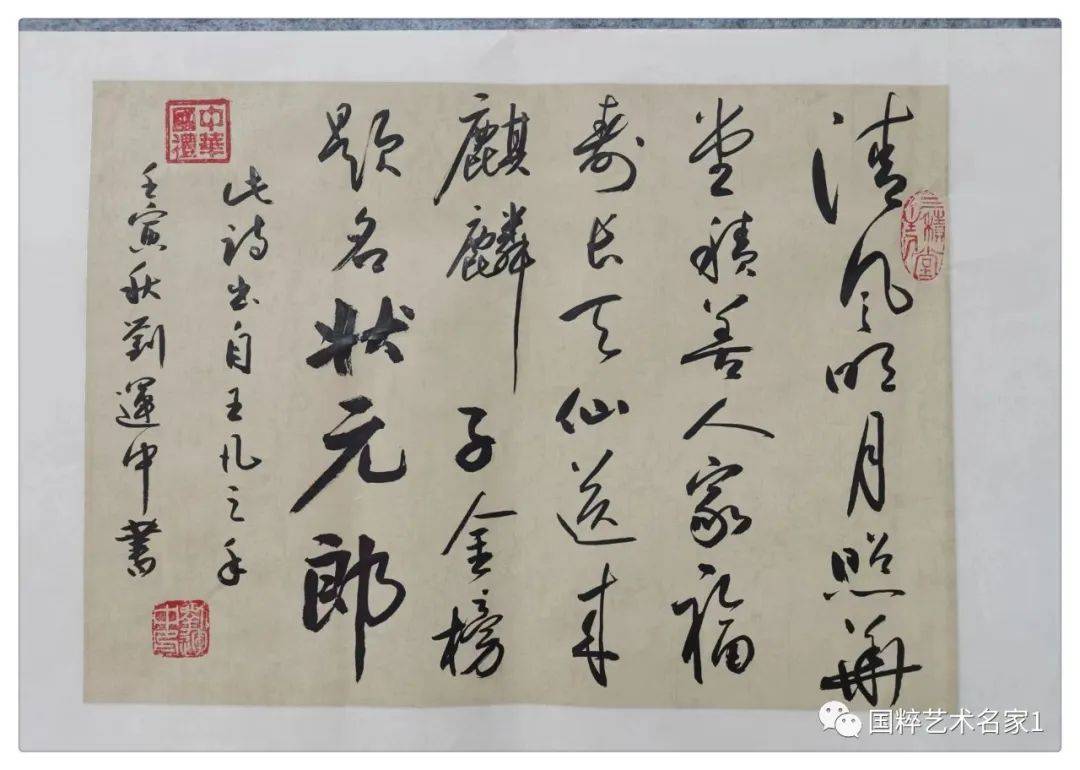 清风明月照華
堂積善人家福
寿长天仙送来
麒麟子金榜
题名状元郎
此诗出自王凡之手
壬寅秋劉運中書
中華
國禮
三積堂
劉運
中印
国粹艺术名家1